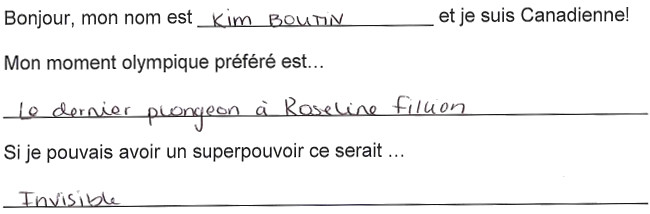 Bonjour, mon nom est Kim BOUTIN et je suis Canadienne!
Mon moment olympique préféré est...
Le dernier plongeon à Roseline Filion
Si je pouvais avoir un superpouvoir ce serait ...
Invisible